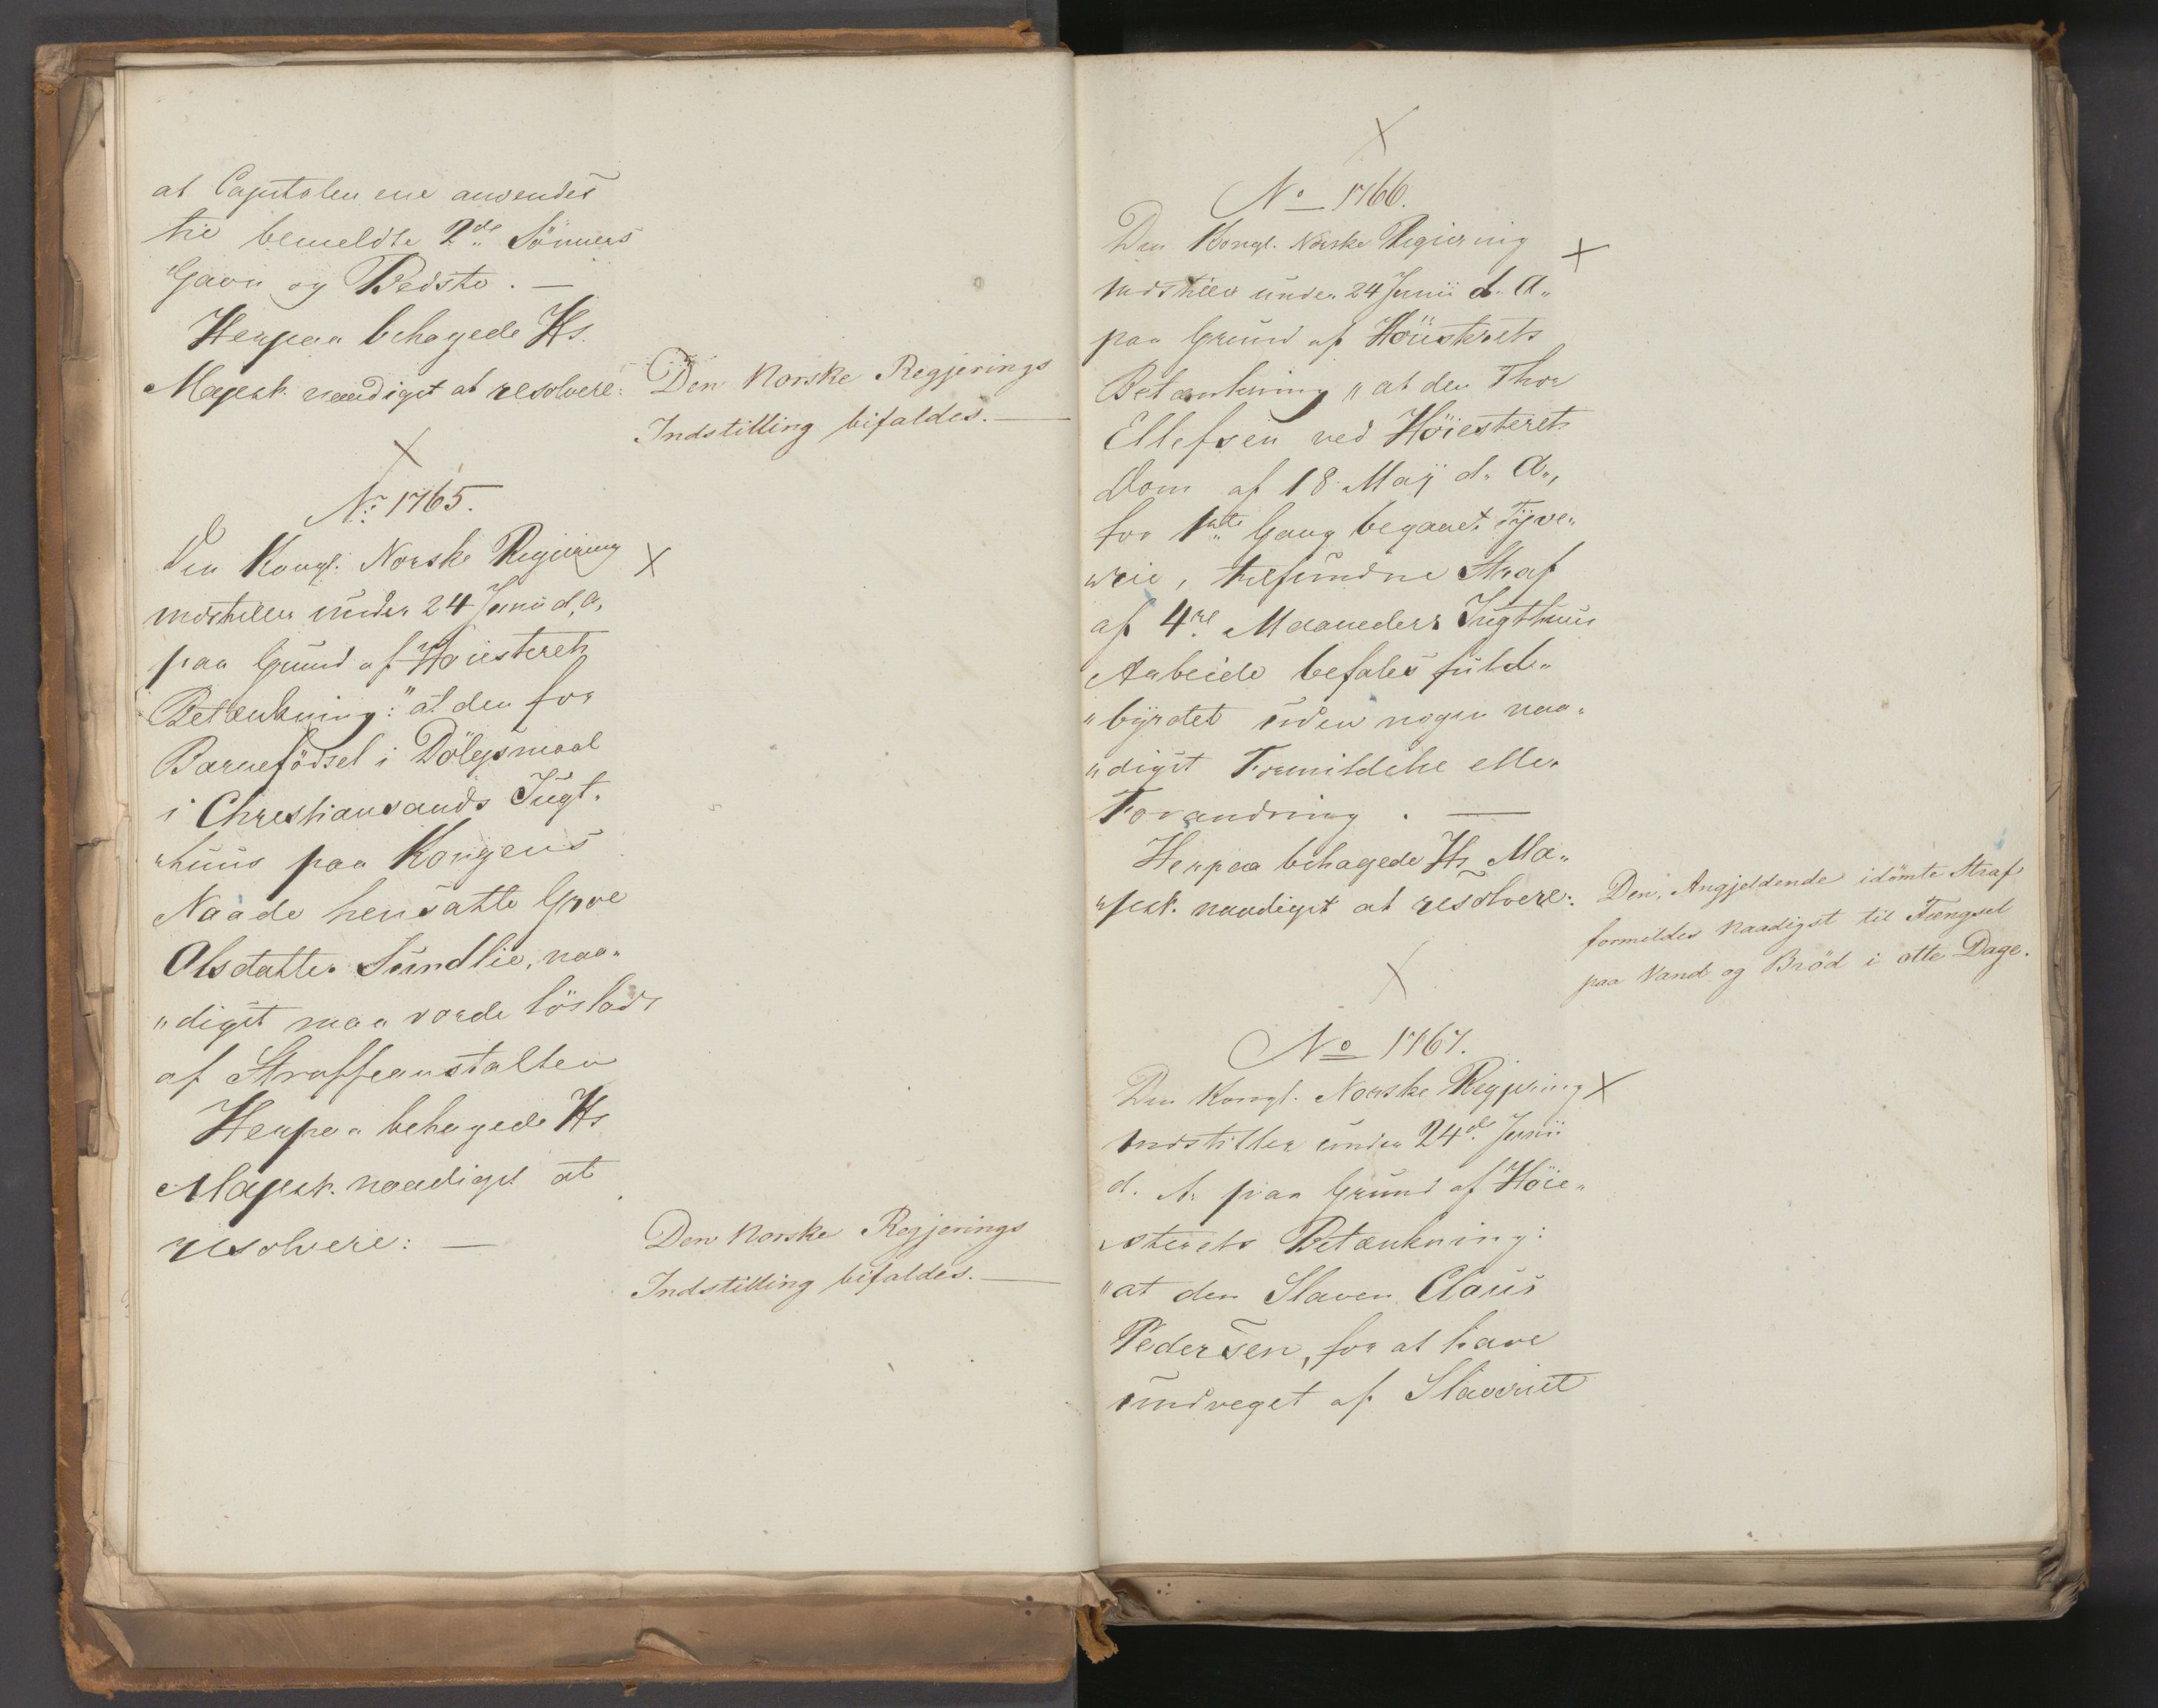 at Capitalen ene anvendes
til bemeldte 2de Sönners
Gavn og Bedste. —
Herpaa behagede Hs.
Majest. naadigst at resolvere:
Den Norske Regjerings
Indstilling bifaldes. —
No 1765.
Den Kongl. Norske Regiering
indstiller under 24 Junii d. a.
paa Grund af Höiesterets
Betænkning: "at den for
Barnefödsel i Dölgsmaal
i Christiansands Tugt-
"huus paa Kongens
Naade hensatte
Olsdatter Sundlie, naa-
"digst maa vorde lösladt
af Straffeanstalten
Herpaa behagede Hs
Majest. naadigst at
resolvere: —
Den Norske Regjerings
Indstilling bifaldes. —
No 1766.
Den Kongl. Norske Regiering
indstiller under 24 Junii d. A.
paa Grund af Höiesterets
Betænkning "at den Thor
Ellefsen ved Höiesterets
Dom af 18 Maij d. A.,
for 1ste Gang begaaet Tyve-
"rie, tilfundne Straf
af 4re Maaneders Tugthuus
Arbeide befales fuld-
"byrdet uden nogen naa-
"digst Formildelse eller
Forandring. —
Herpaa behagede Hs Ma-
"jest. naadigst at resolvere:
Den, Angjeldende idömte Straf
formildes Naadigst til Fængsel
paa Vand og Bröd i otte Dage.
No 1767.
Den Kongl. Norske Regjering
indstiller under 24de Junii
d. A. paa Grund af Höie-
"sterets Betænkning:
"at den Slaven Claus
Pedersen, for at have
undveget af Slaveriet